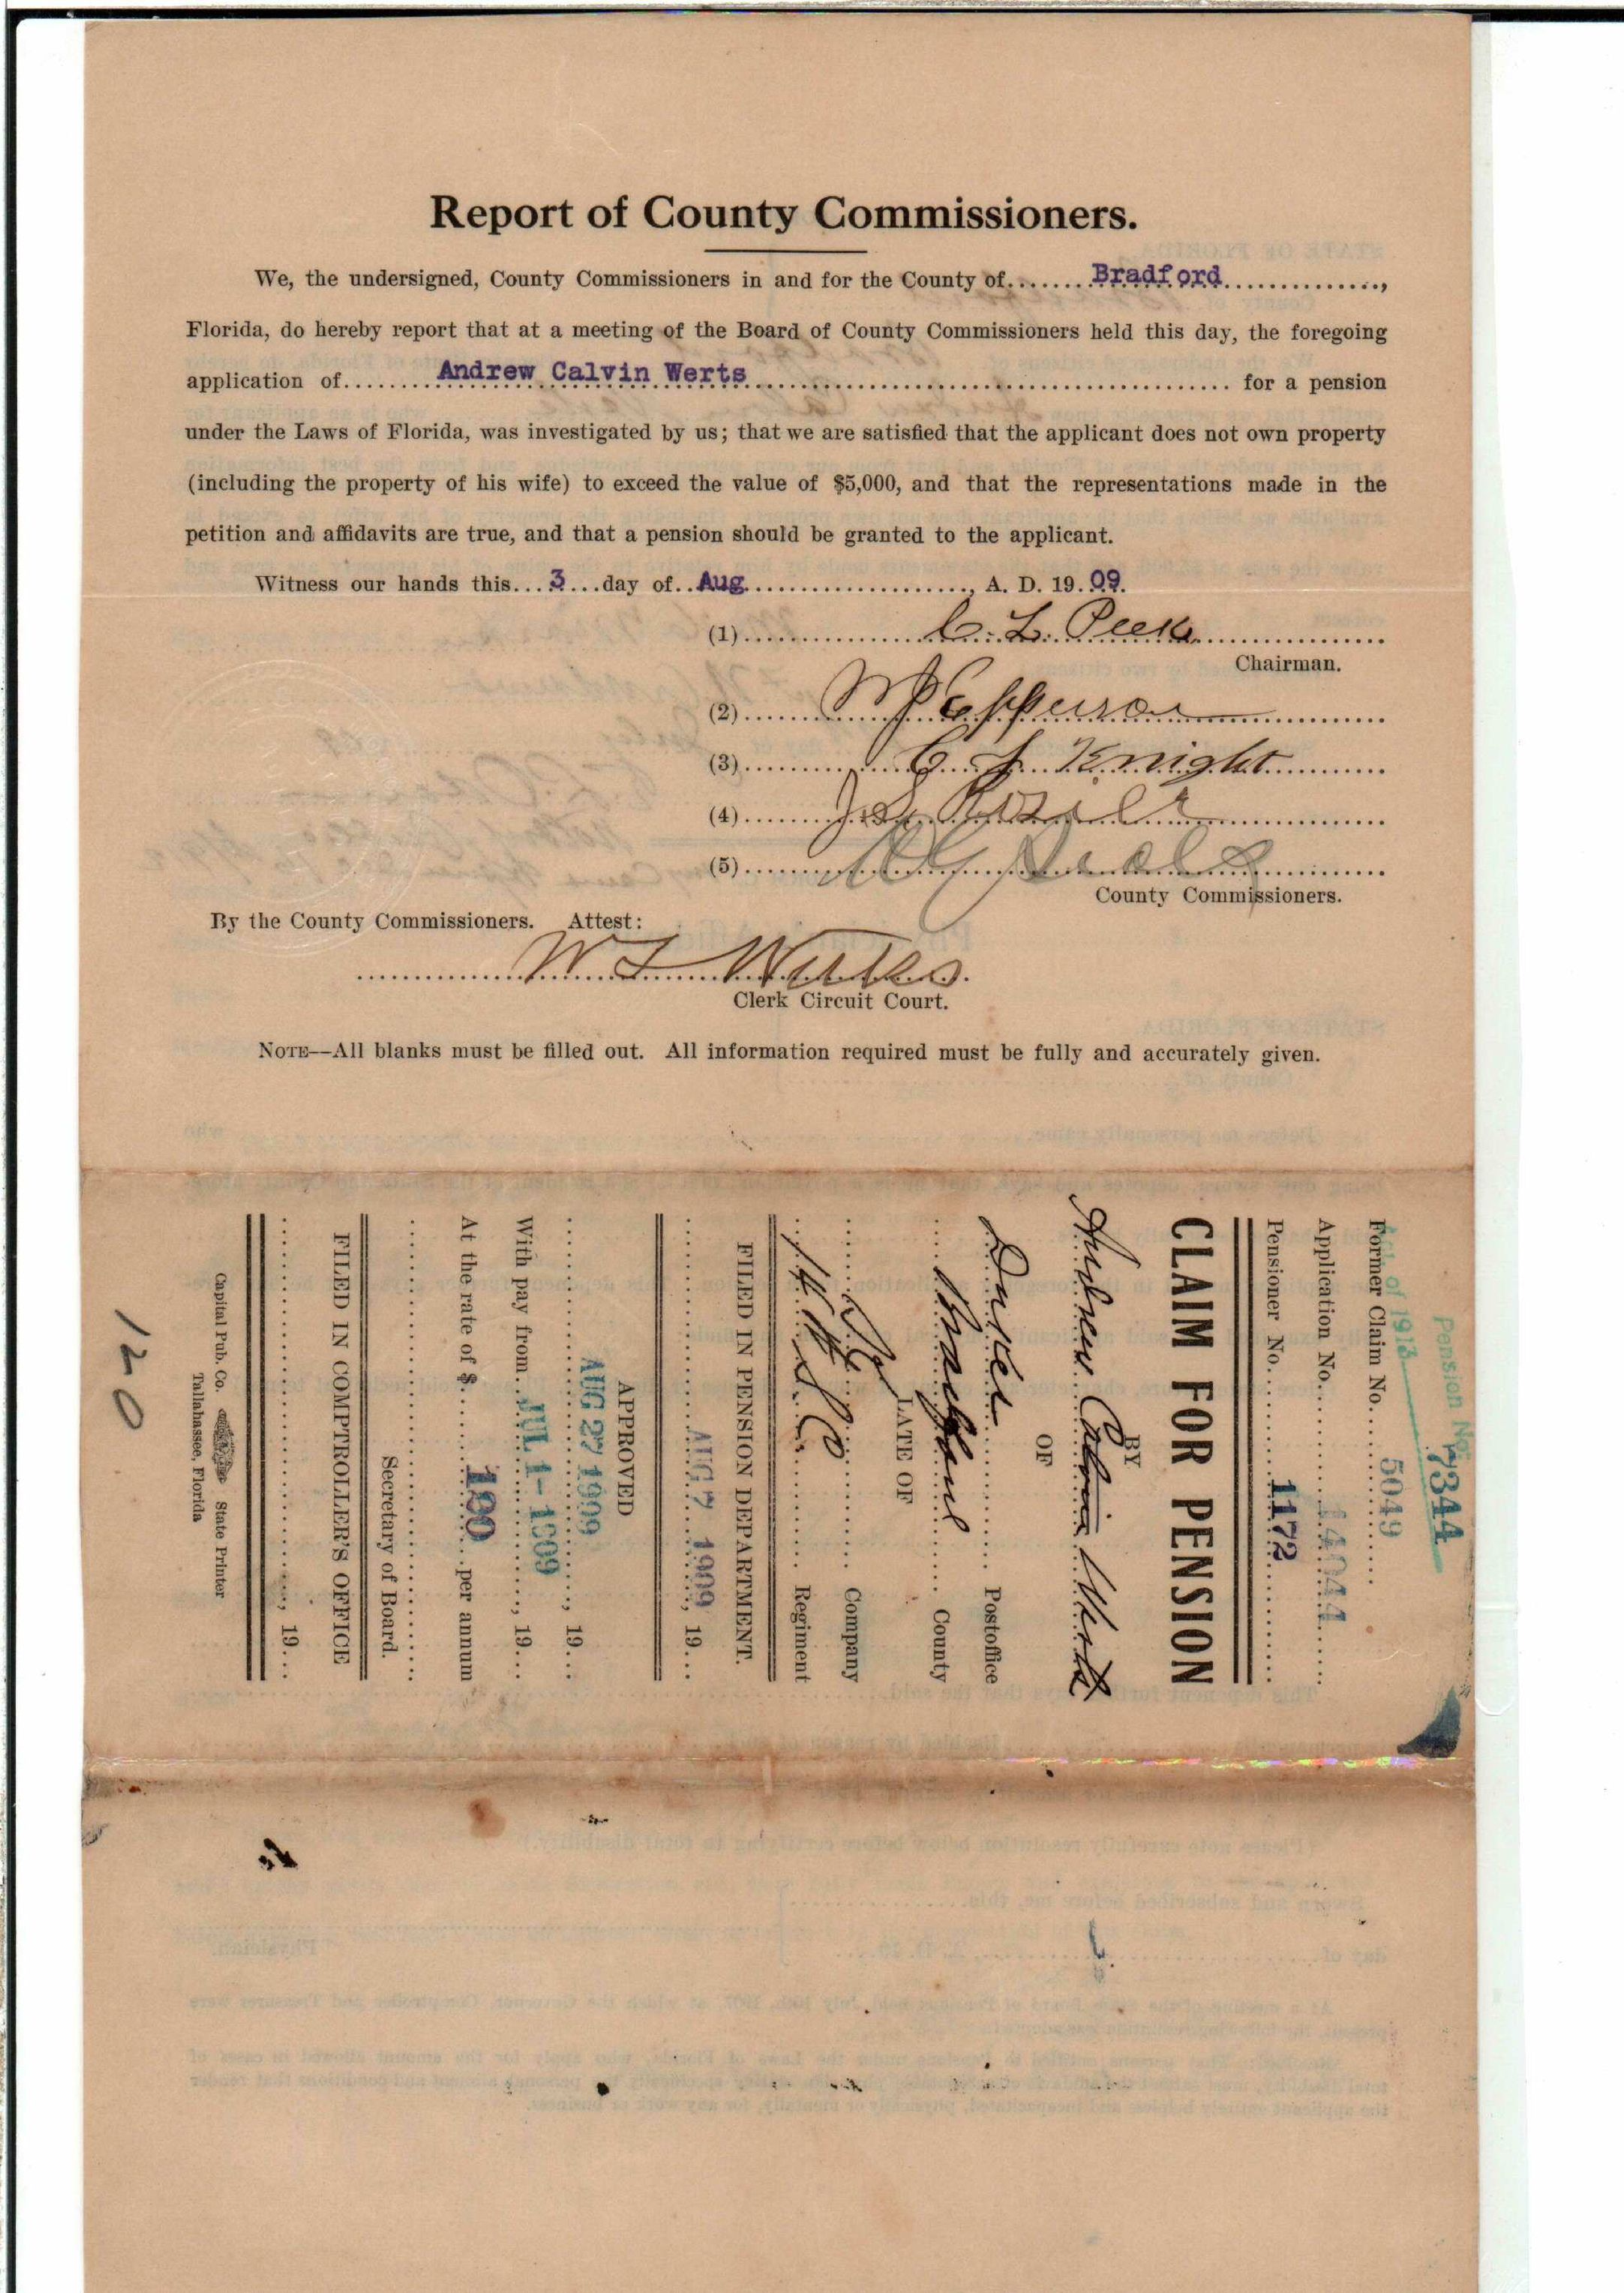 Report of County Commissioners.
We, the undersigned, County Commissioners in and for the County of........Bradford..............,
Florida, do hereby report that at a meeting of the Board of County Commissioners held this day, the foregoing
application of........Andrew Calvin Werts........ for a pension
under the Laws of Florida, was investigated by us; that we are satisfied that the applicant does not own property
(including the property of his wife) to exceed the value of $5,000, and that the representations made in the
petition and affidavits are true, and that a pension should be granted to the applicant.
Witness our hands this...3...day of..Aug...................., A. D. 19.09.
(1) C. L. Peek
Chairman.
(2) Epperson
(3) C. S. Knight
(4)
(5)
County Commissioners.
By the County Commissioners. Attest:
W L Wills
Clerk Circuit Court.
NOTE—All blanks must be filled out. All information required must be fully and accurately given.
Pension No. 7344
of 1913
Former Claim No. 5049
Application No. 14044
Pensioner No. 1172
CLAIM FOR PENSION
BY
Andrew Calvin Werts
OF
Postoffice
Bradford County
LATE OF
Company
14th S. C. Regiment
FILED IN PENSION DEPARTMENT.
AUG 7 1909, 19...
APPROVED
AUG 27 1909, 19...
With pay from JUL 1- 1909, 19...
At the rate of $ 120 per annum
Secretary of Board.
FILED IN COMPTROLLER'S OFFICE
, 19...
Capital Pub. Co. State Printer
Tallahassee, Florida
120